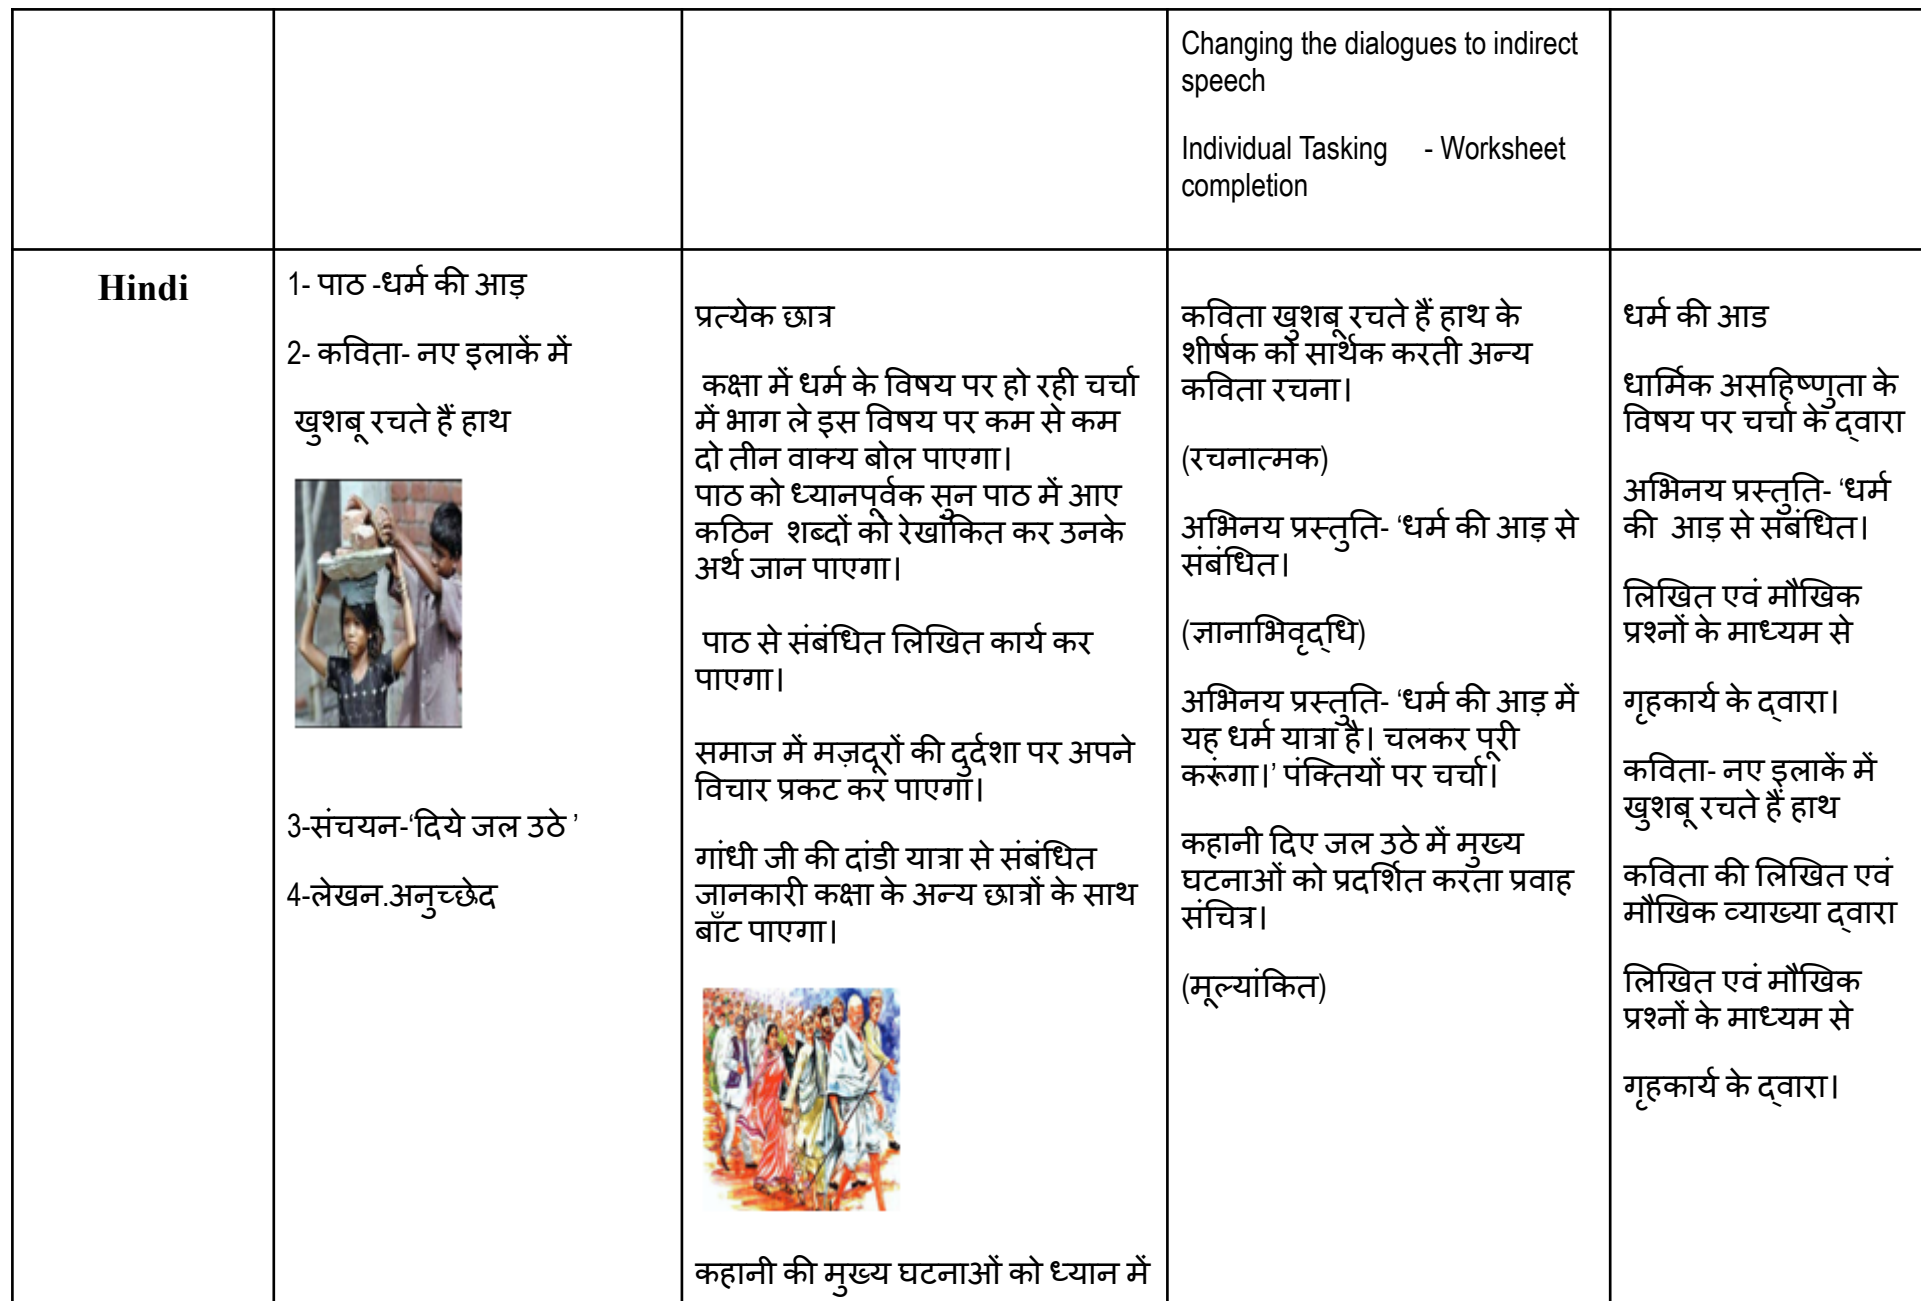 Changing the dialogues to indirect
speech
Individual Tasking - Worksheet
completion
Hindi
1- पाठ -धर्म की आड़
2- कविता- नए इलाकें में
खुशबू रचते हैं हाथ
3-संचयन-‘दिये जल उठे ’
4-लेखन.अनुच्छेद
प्रत्येक छात्र
कक्षा में धर्म के विषय पर हो रही चर्चा
में भाग ले इस विषय पर कम से कम
दो तीन वाक्य बोल पाएगा।
पाठ को ध्यानपूर्वक सुन पाठ में आए
कठिन शब्दों को रेखांकित कर उनके
अर्थ जान पाएगा।
पाठ से संबंधित लिखित कार्य कर
पाएगा।
समाज में मज़दूरों की दुर्दशा पर अपने
विचार प्रकट कर पाएगा।
गांधी जी की दांडी यात्रा से संबंधित
जानकारी कक्षा के अन्य छात्रों के साथ
बाँट पाएगा।
कहानी की मुख्य घटनाओं को ध्यान में
कविता खुशबू रचते हैं हाथ के
शीर्षक को सार्थक करती अन्य
कविता रचना।
(रचनात्मक)
अभिनय प्रस्तुति- ‘धर्म की आड़ से
संबंधित।
(ज्ञानाभिवृद्धि)
अभिनय प्रस्तुति- ‘धर्म की आड़ में
यह धर्म यात्रा है। चलकर पूरी
करूंगा।’ पंक्तियों पर चर्चा।
कहानी दिए जल उठे में मुख्य
घटनाओं को प्रदर्शित करता प्रवाह
संचित्र।
(मूल्यांकित)
धर्म की आड
धार्मिक असहिष्णुता के
विषय पर चर्चा के द्वारा
अभिनय प्रस्तुति- ‘धर्म
की आड़ से संबंधित।
लिखित एवं मौखिक
प्रश्नों के माध्यम से
गृहकार्य के द्वारा।
कविता- नए इलाकें में
खुशबू रचते हैं हाथ
कविता की लिखित एवं
मौखिक व्याख्या द्वारा
लिखित एवं मौखिक
प्रश्नों के माध्यम से
गृहकार्य के द्वारा।